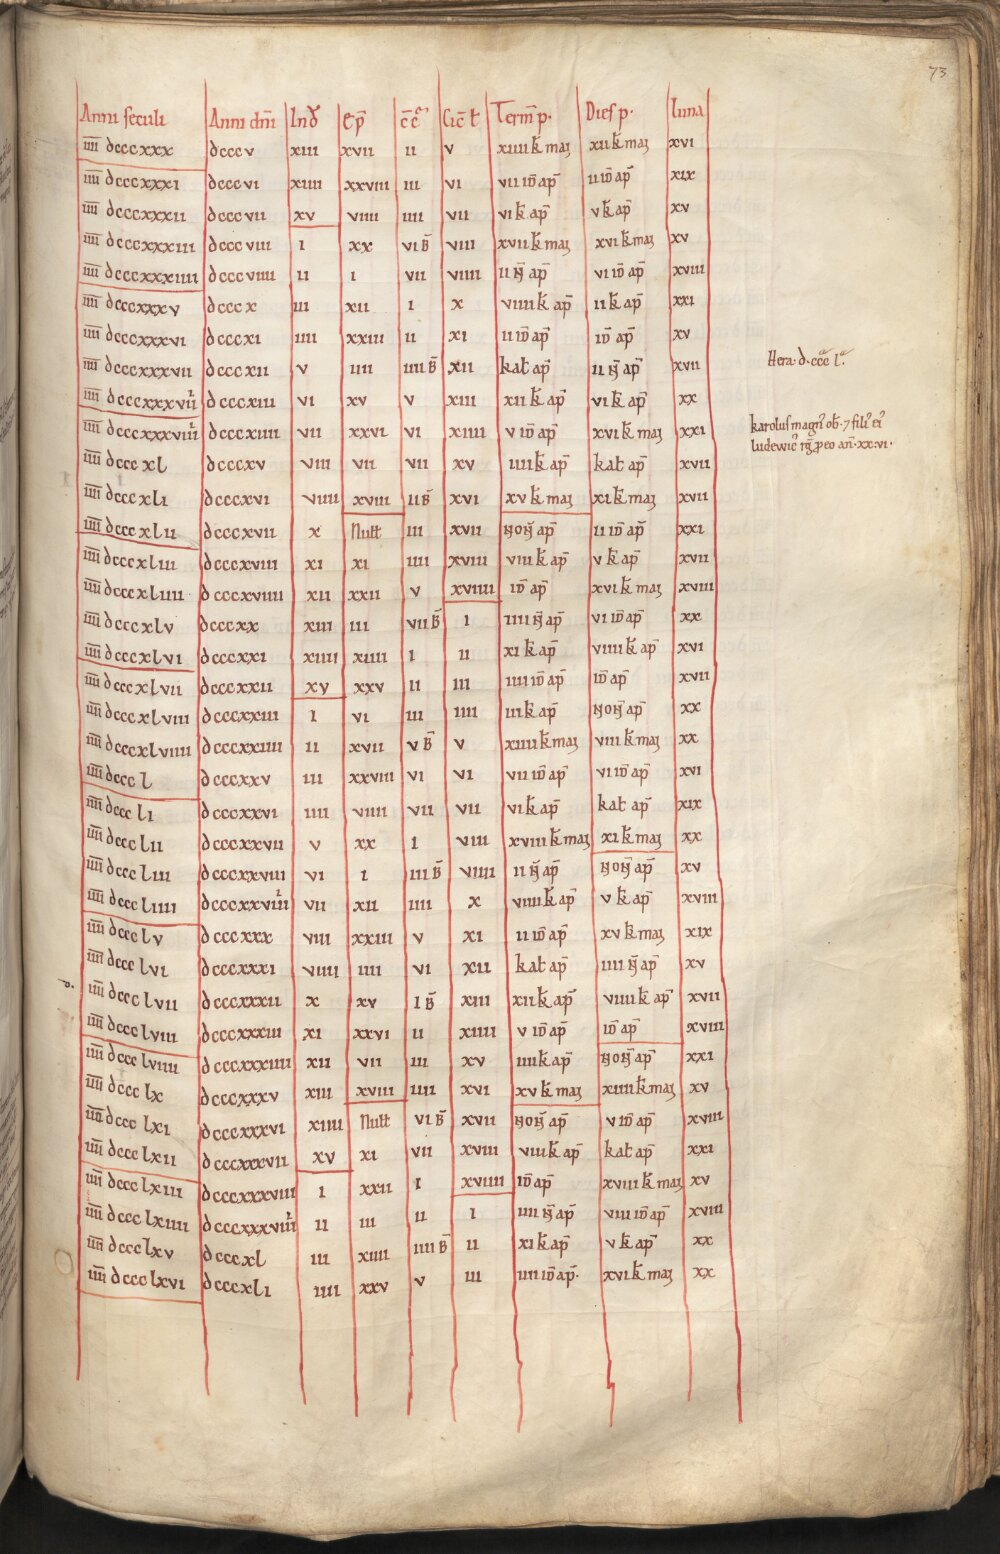 73
Anni seculi Anni dn̄i Ind̄ Ep̄ c̄c̄ Cic̄ ł Term̄ p. Dies p. Luna
īīīī dcccxxx dcccv xiii xvii ii v xiiii k̄ mai xii k̄ mai xvi
īīīī dcccxxxi dcccvi xiiii xxviii iii vi vii id̄ ap̄ ii id̄ ap̄ xix
īīīī dcccxxxii dcccvii xv viiii iiii vii vi k̄ ap̄ v k̄ ap̄ xv
īīīī dcccxxxiii dcccviii i xx vi b̄ viii xvii k̄ mai xvi k̄ mai xv
īīīī dcccxxxiiii dcccviiii ii i vii viiii ii n̄ ap̄ vi id̄ ap̄ xviii
īīīī dcccxxxv dcccx iii xii i x viiii k̄ ap̄ ii k̄ ap̄ xxi
īīīī dcccxxxvi dcccxi iiii xxiii ii xi ii id̄ ap̄ id̄ ap̄ xv
īīīī dcccxxxvii dcccxii v iiii iiii b̄ xii kał ap̄ ii n̄ ap̄ xvii
Hera. d.ccc l.
īīīī dcccxxxviii dcccxiii vi xv v xiii xii k̄ ap̄ vi k̄ ap̄ xx
īīīī dcccxxxviiii dcccxiiii vii xxvi vi xiiii v id̄ ap̄ xvi k̄ mai xxi
karolus magn' ob̄. 7 fili' ei'
ludewic' rḡ p eo an̄. xx.vi.
īīīī dcccxl dcccxv viii vii vii xv iiii k̄ ap̄ kał ap̄ xvii
īīīī dcccxli dcccxvi viiii xviii ii b̄ xvi xv k̄ mai xi k̄ mai xvii
īīīī dcccxlii dcccxvii x Nułł iii xvii non̄ ap̄ ii id̄ ap̄ xxi
īīīī dcccxliii dcccxviii xi xi iiii xviii viii k̄ ap̄ v k̄ ap̄ xvii
īīīī dcccxliiii dcccxviiii xii xxii v xviiii id̄ ap̄ xvi k̄ mai xviii
īīīī dcccxlv dcccxx xiii iii vii b̄ i iiii n̄ ap̄ vi id̄ ap̄ xx
īīīī dcccxlvi dcccxxi xiiii xiiii i ii xi k̄ ap̄ viiii k̄ ap̄ xvi
īīīī dcccxlvii dcccxxii xv xxv ii iii iiii id̄ ap̄ id̄ ap̄ xvii
īīīī dcccxlviii dcccxxiii i vi iii iiii iii k̄ ap̄ non̄ ap̄ xx
īīīī dcccxlviiii dcccxxiiii ii xvii v b̄ v xiiii k̄ mai viii k̄ mai xx
īīīī dcccl dcccxxv iii xxviii vi vi vii id̄ ap̄ vi id̄ ap̄ xvi
īīīī dcccli dcccxxvi iiii viiii vii vii vi k̄ ap̄ kał ap̄ xix
īīīī dccclii dcccxxvii v xx i viii xviii k̄ mai xi k̄ mai xx
īīīī dcccliii dcccxxviii vi i iii b̄ viiii ii n̄ ap̄ non̄ ap̄ xv
īīīī dcccliiii dcccxxviiii vii xii iiii x viiii k̄ ap̄ v k̄ ap̄ xviii
īīīī dccclv dcccxxx viii xxiii v xi ii id̄ ap̄ xv k̄ mai xix
īīīī dccclvi dcccxxxi viiii iiii vi xii kał ap̄ iiii n̄ ap̄ xv
īīīī dccclvii dcccxxxii x xv i b̄ xiii xii k̄ ap̄ viiii k̄ ap̄ xvii
īīīī dccclviii dcccxxxiii xi xxvi ii xiiii v id̄ ap̄ id̄ ap̄ xviii
īīīī dccclviiii dcccxxxiiii xii vii iii xv iiii k̄ ap̄ non̄ ap̄ xxi
īīīī dccclx dcccxxxv xiii xviii iiii xvi xv k̄ mai xiiii k̄ mai xv
īīīī dccclxi dcccxxxvi xiiii Nułł vi b̄ xvii non̄ ap̄ v id̄ ap̄ xviii
īīīī dccclxii dcccxxxvii xv xi vii xviii viii k̄ ap̄ kał ap̄ xxi
īīīī dccclxiii dcccxxxviii i xxii i xviiii id̄ ap̄ xviii k̄ mai xv
īīīī dccclxiiii dcccxxxviiii ii iii ii i iiii n̄ ap̄ viii id̄ ap̄ xviii
īīīī dccclxv dcccxl iii xiiii iiii b̄ ii xi k̄ ap̄ v k̄ ap̄ xx
īīīī dccclxvi dcccxli iiii xxv v iii iiii id̄ ap̄. xvi k̄ mai xx